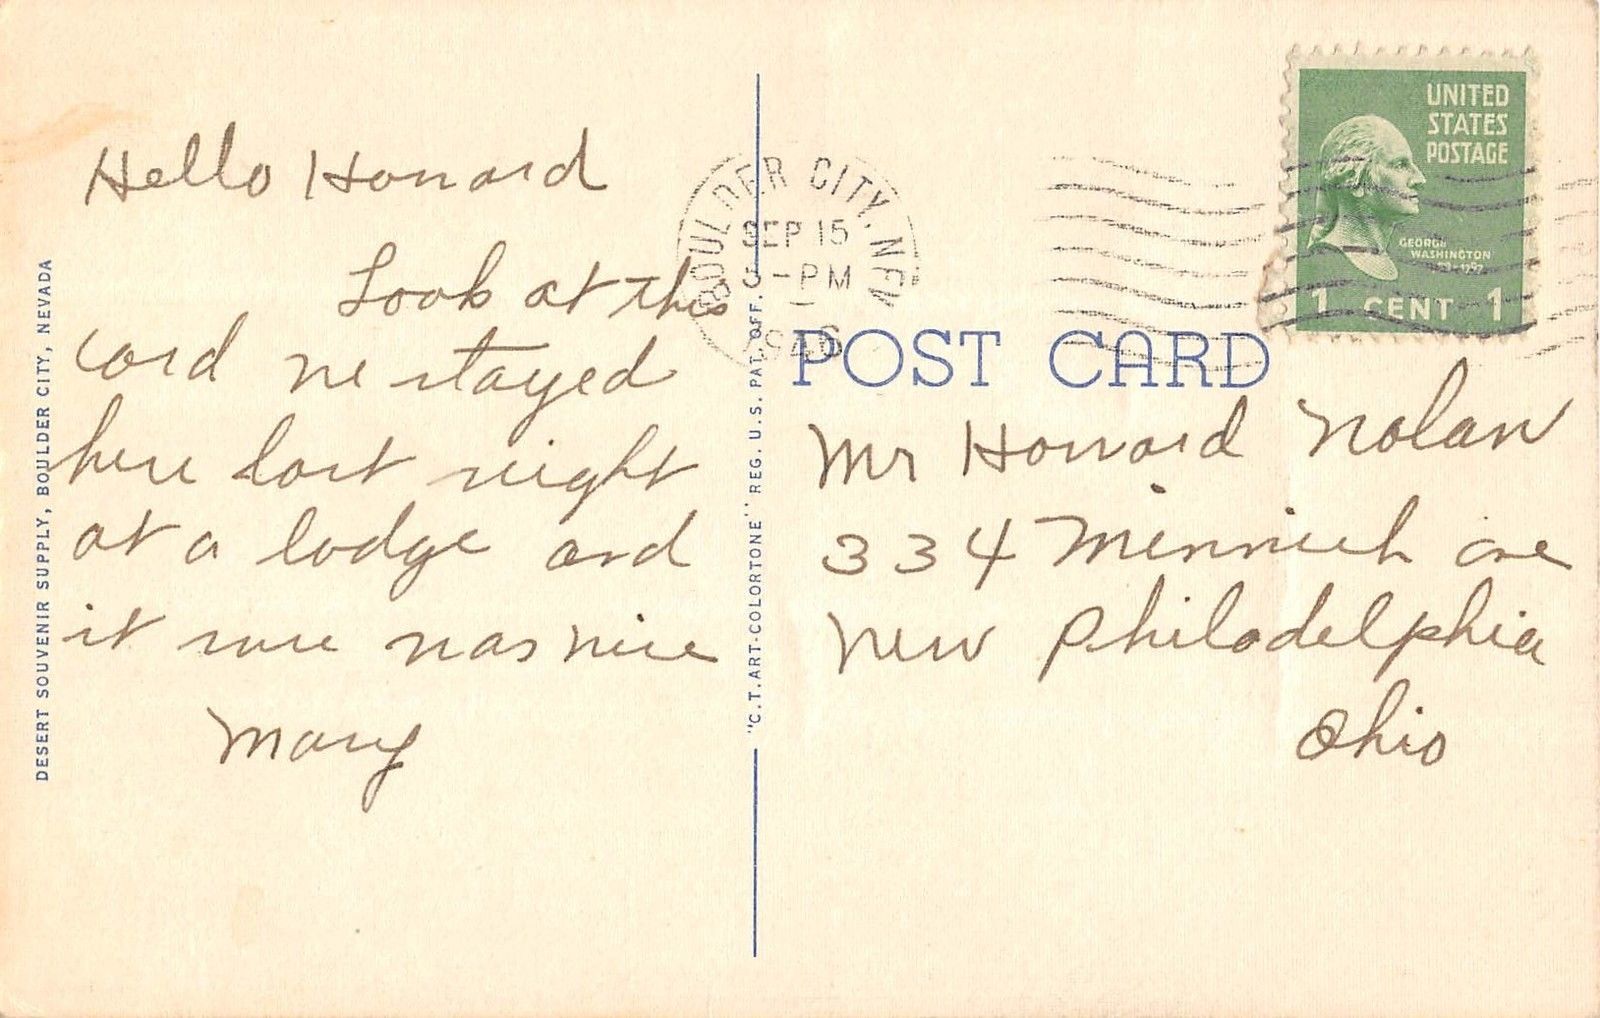 Hello Howard
Look at this
card we stayed
here last night
at a lodge and
it sure was nice
Mary
DESERT SOUVENIR SUPPLY, BOULDER CITY, NEVADA
"C.T. ART-COLORTONE" REG. U.S. PAT. OFF.
BOULDER CITY, NEV.
SEP 15
PM
UNITED
STATES
POSTAGE
GEORGE
WASHINGTON
1 CENT 1
POST CARD
Mr Howard Nolan
334 Minnich ave
New Philadelphia
Ohio